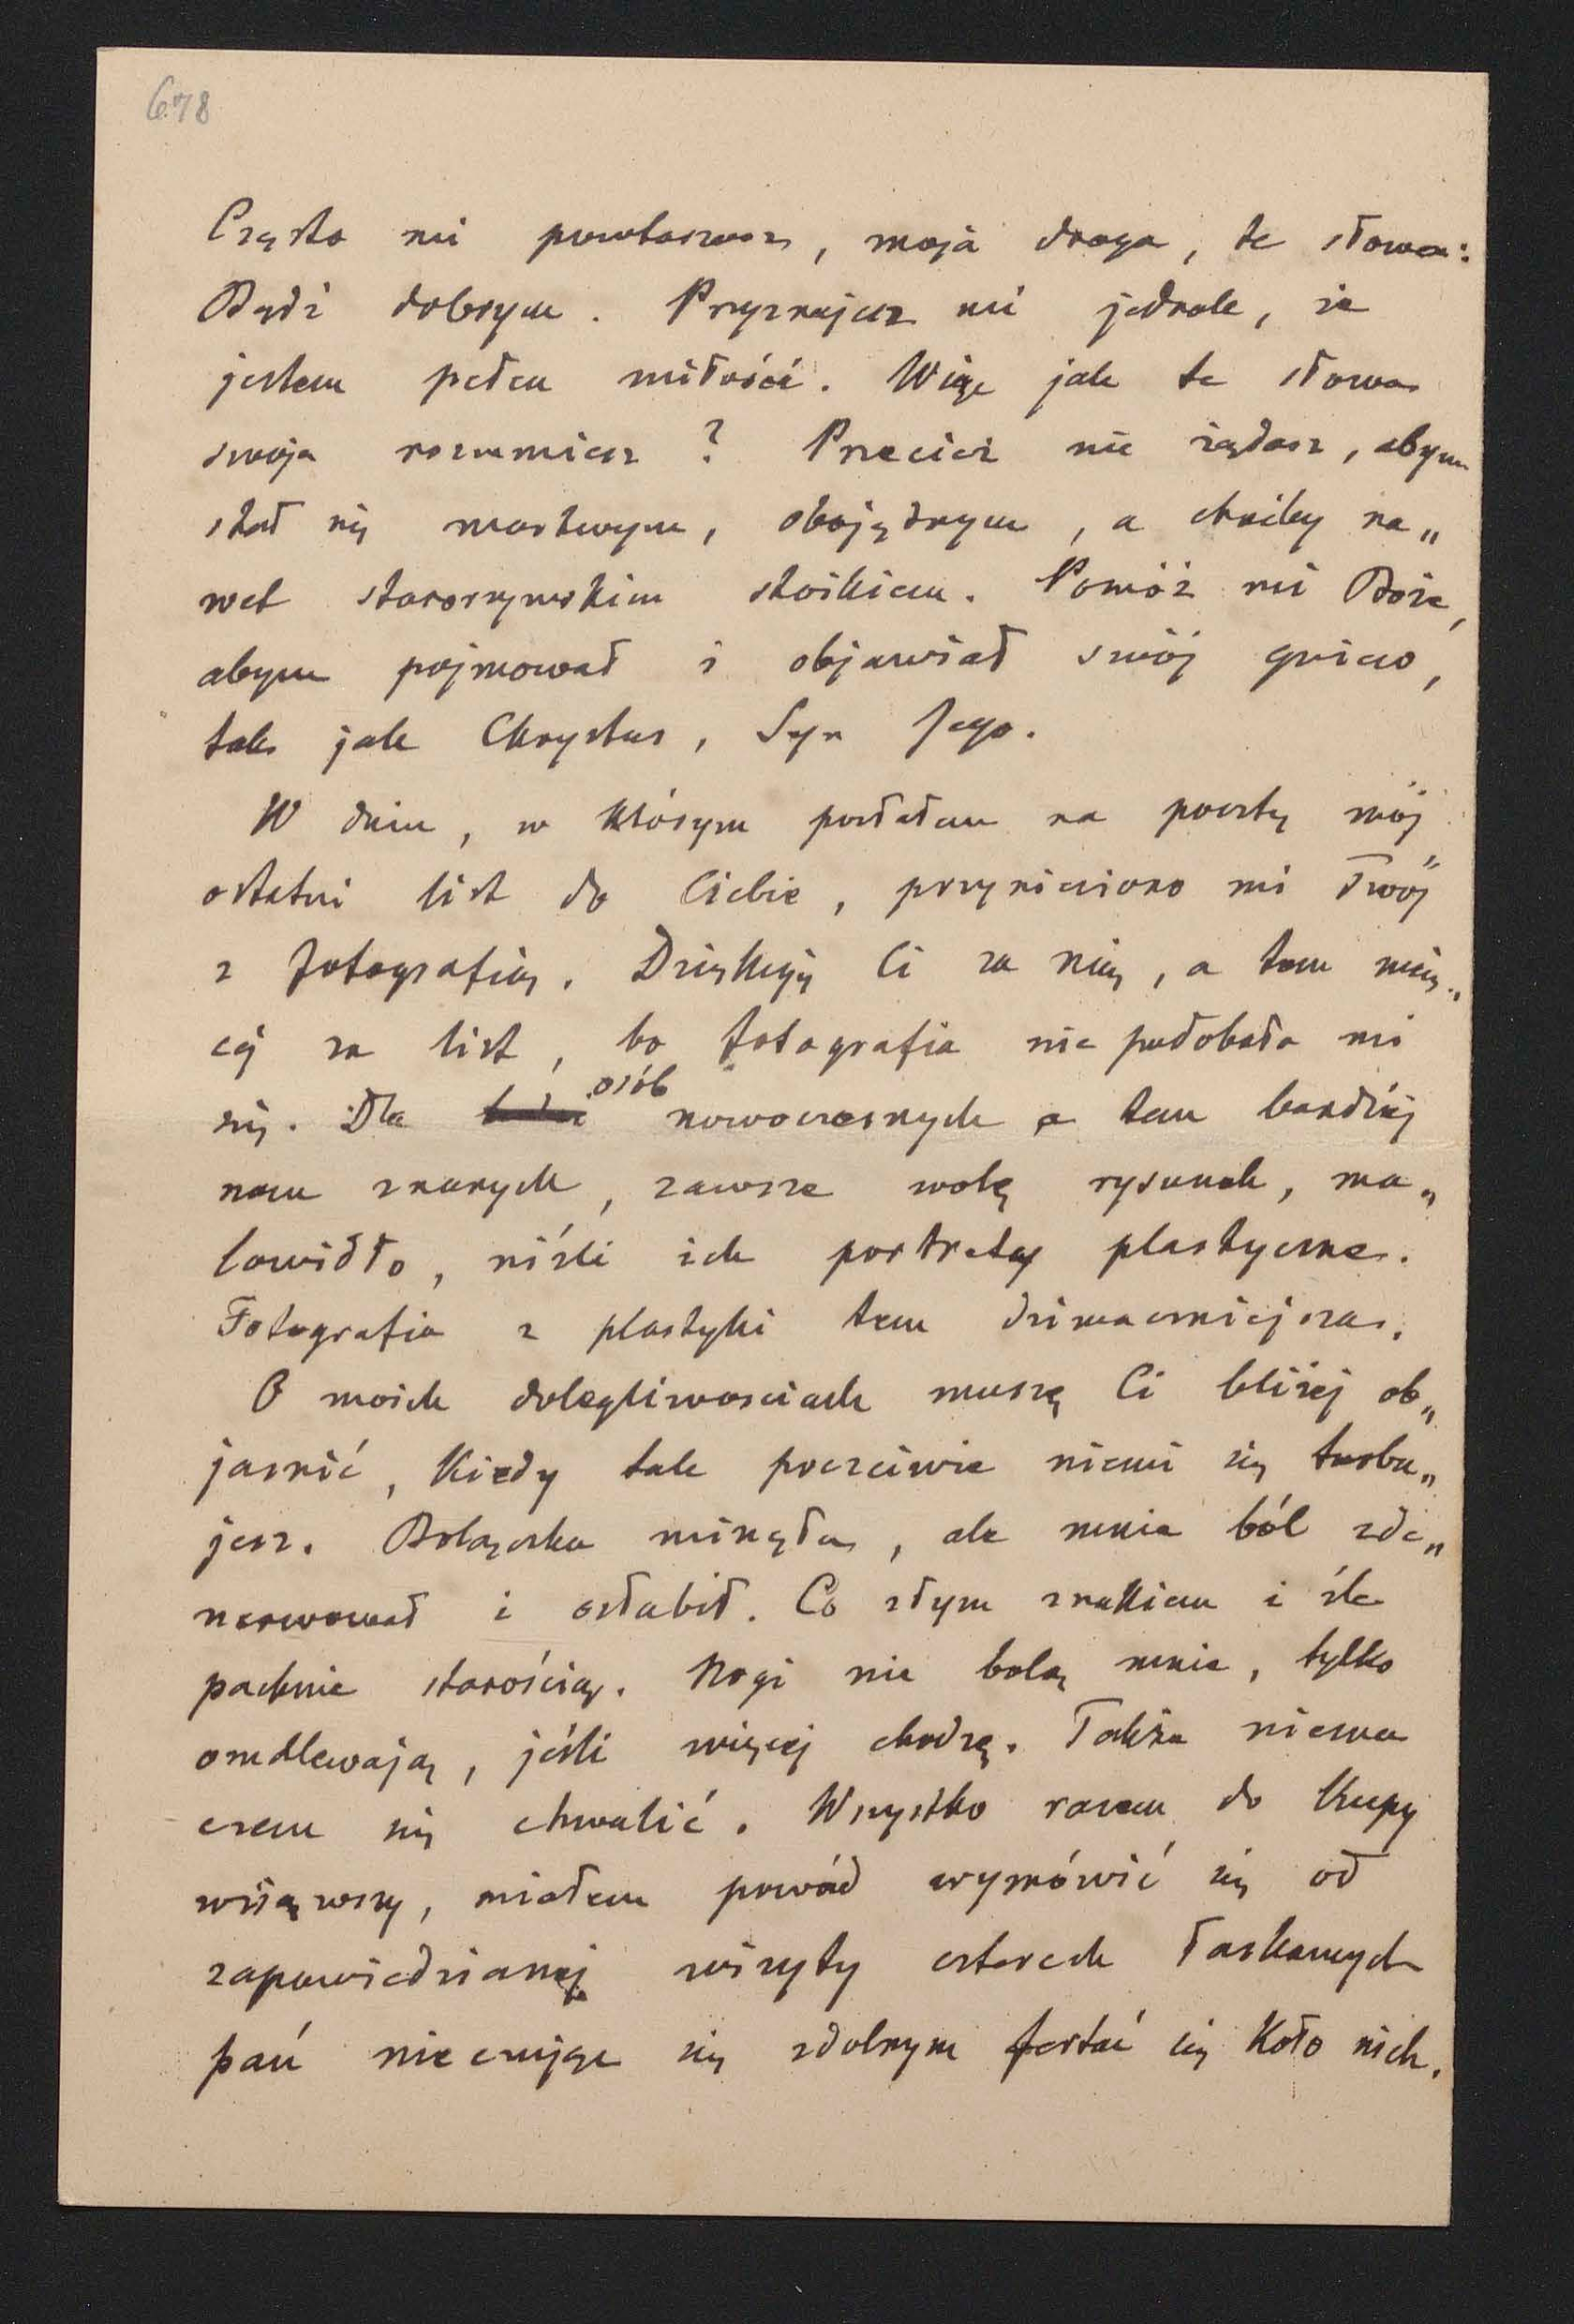 678
Często mi powtarzasz, moja droga, te słowa:
Bądź dobrym. Przyznajesz mi jednak, że
jestem pełen miłości. Więc jak te słowa
swoje rozumiesz? Przecież nie żądasz, abym
stał się martwym, obojętnym, a choćby na„
wet starorzymskim stoikiem. Pomóż mi Boże,
abym pojmował i objawiał swój gniew,
tak jak Chrystus, Syn Jego.
W dniu, w którym posłałem na pocztę mój
ostatni list do Ciebie, przyniesiono mi Twój
z fotografią. Dziękuję Ci za nią, a tem wię„
cej za list, bo fotografia nie podobała mi
się. Dla osób nowoczesnych a tem bardziej
nam znanych, zawsze wolę rysunek, ma„
lowidło, niźli ich portrety plastyczne.
Fotografia z plastyki tem dziwaczniejsza.
O moich dolegliwosciach muszę Ci bliżej ob„
jasnić, kiedy tak poczciwie niemi się turbu„
jesz. Bolączka minęła, ale mnie ból zde„
nerwował i osłabił. Co złym znakiem i źle
pachnie starością. Nogi nie bolą mnie, tylko
omdlewają, jeśli więcej chodzę. Także niema
czem się chwalić. Wszystko razem do kupy
wziąwszy, miałem powód wymówić się od
zapowiedzianej wizyty czterech łaskawych
pań nieczując się zdolnym fertać się koło nich.